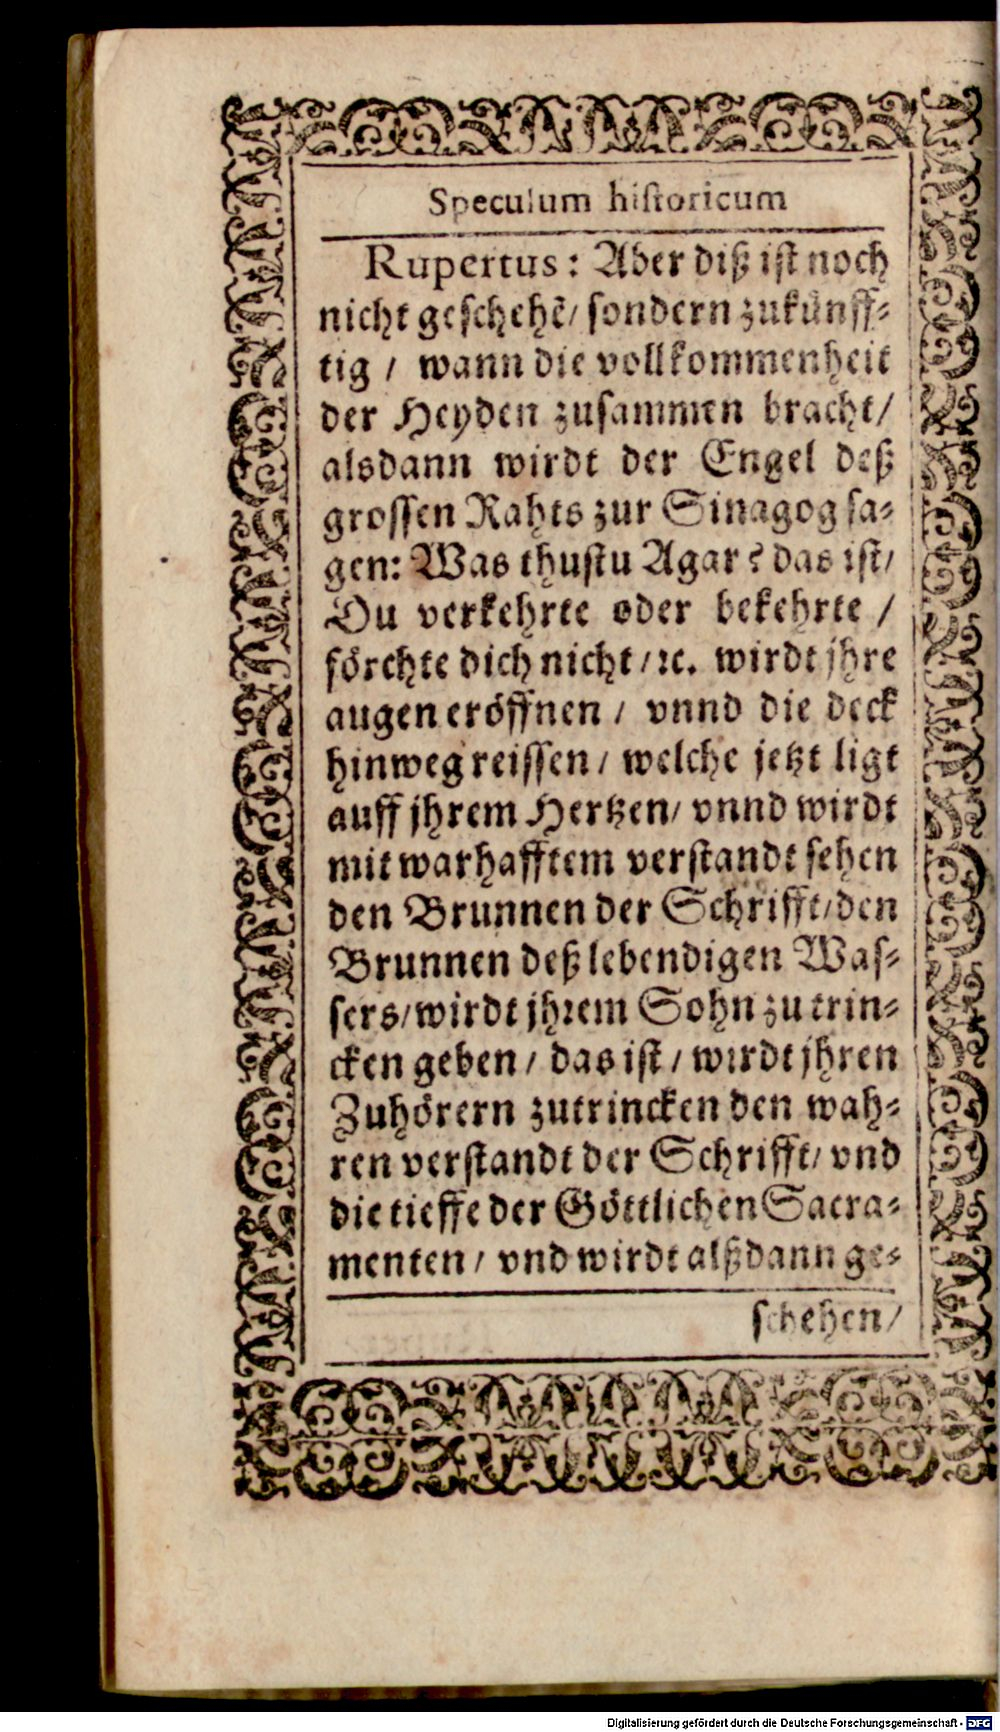 Speculum historicum
Rupertus: Aber diß ist noch
nicht geschehẽ/ sondern zukünff-
tig / wann die vollkommenheit
der Heyden zusammen bracht/
alsdann wirdt der Engel deß
grossen Rahts zur Sinagog sa-
gen: Was thustu Agar? das ist/
Du verkehrte oder bekehrte /
förchte dich nicht / ꝛc. wirdt jhre
augen eröffnen / vnnd die deck
hinweg reissen / welche jetzt ligt
auff jhrem Hertzen/ vnnd wirdt
mit warhafftem verstandt sehen
den Brunnen der Schrifft/ den
Brunnen deß lebendigen Was-
sers/ wirdt jhrem Sohn zu trin-
cken geben / das ist / wirdt jhren
Zuhörern zutrincken den wah-
ren verstandt der Schrifft/ vnd
die tieffe der Göttlichen Sacra-
menten / vnd wirdt alßdann ge-
schehen/
Digitalisierung gefördert durch die Deutsche Forschungsgemeinschaft - DFG